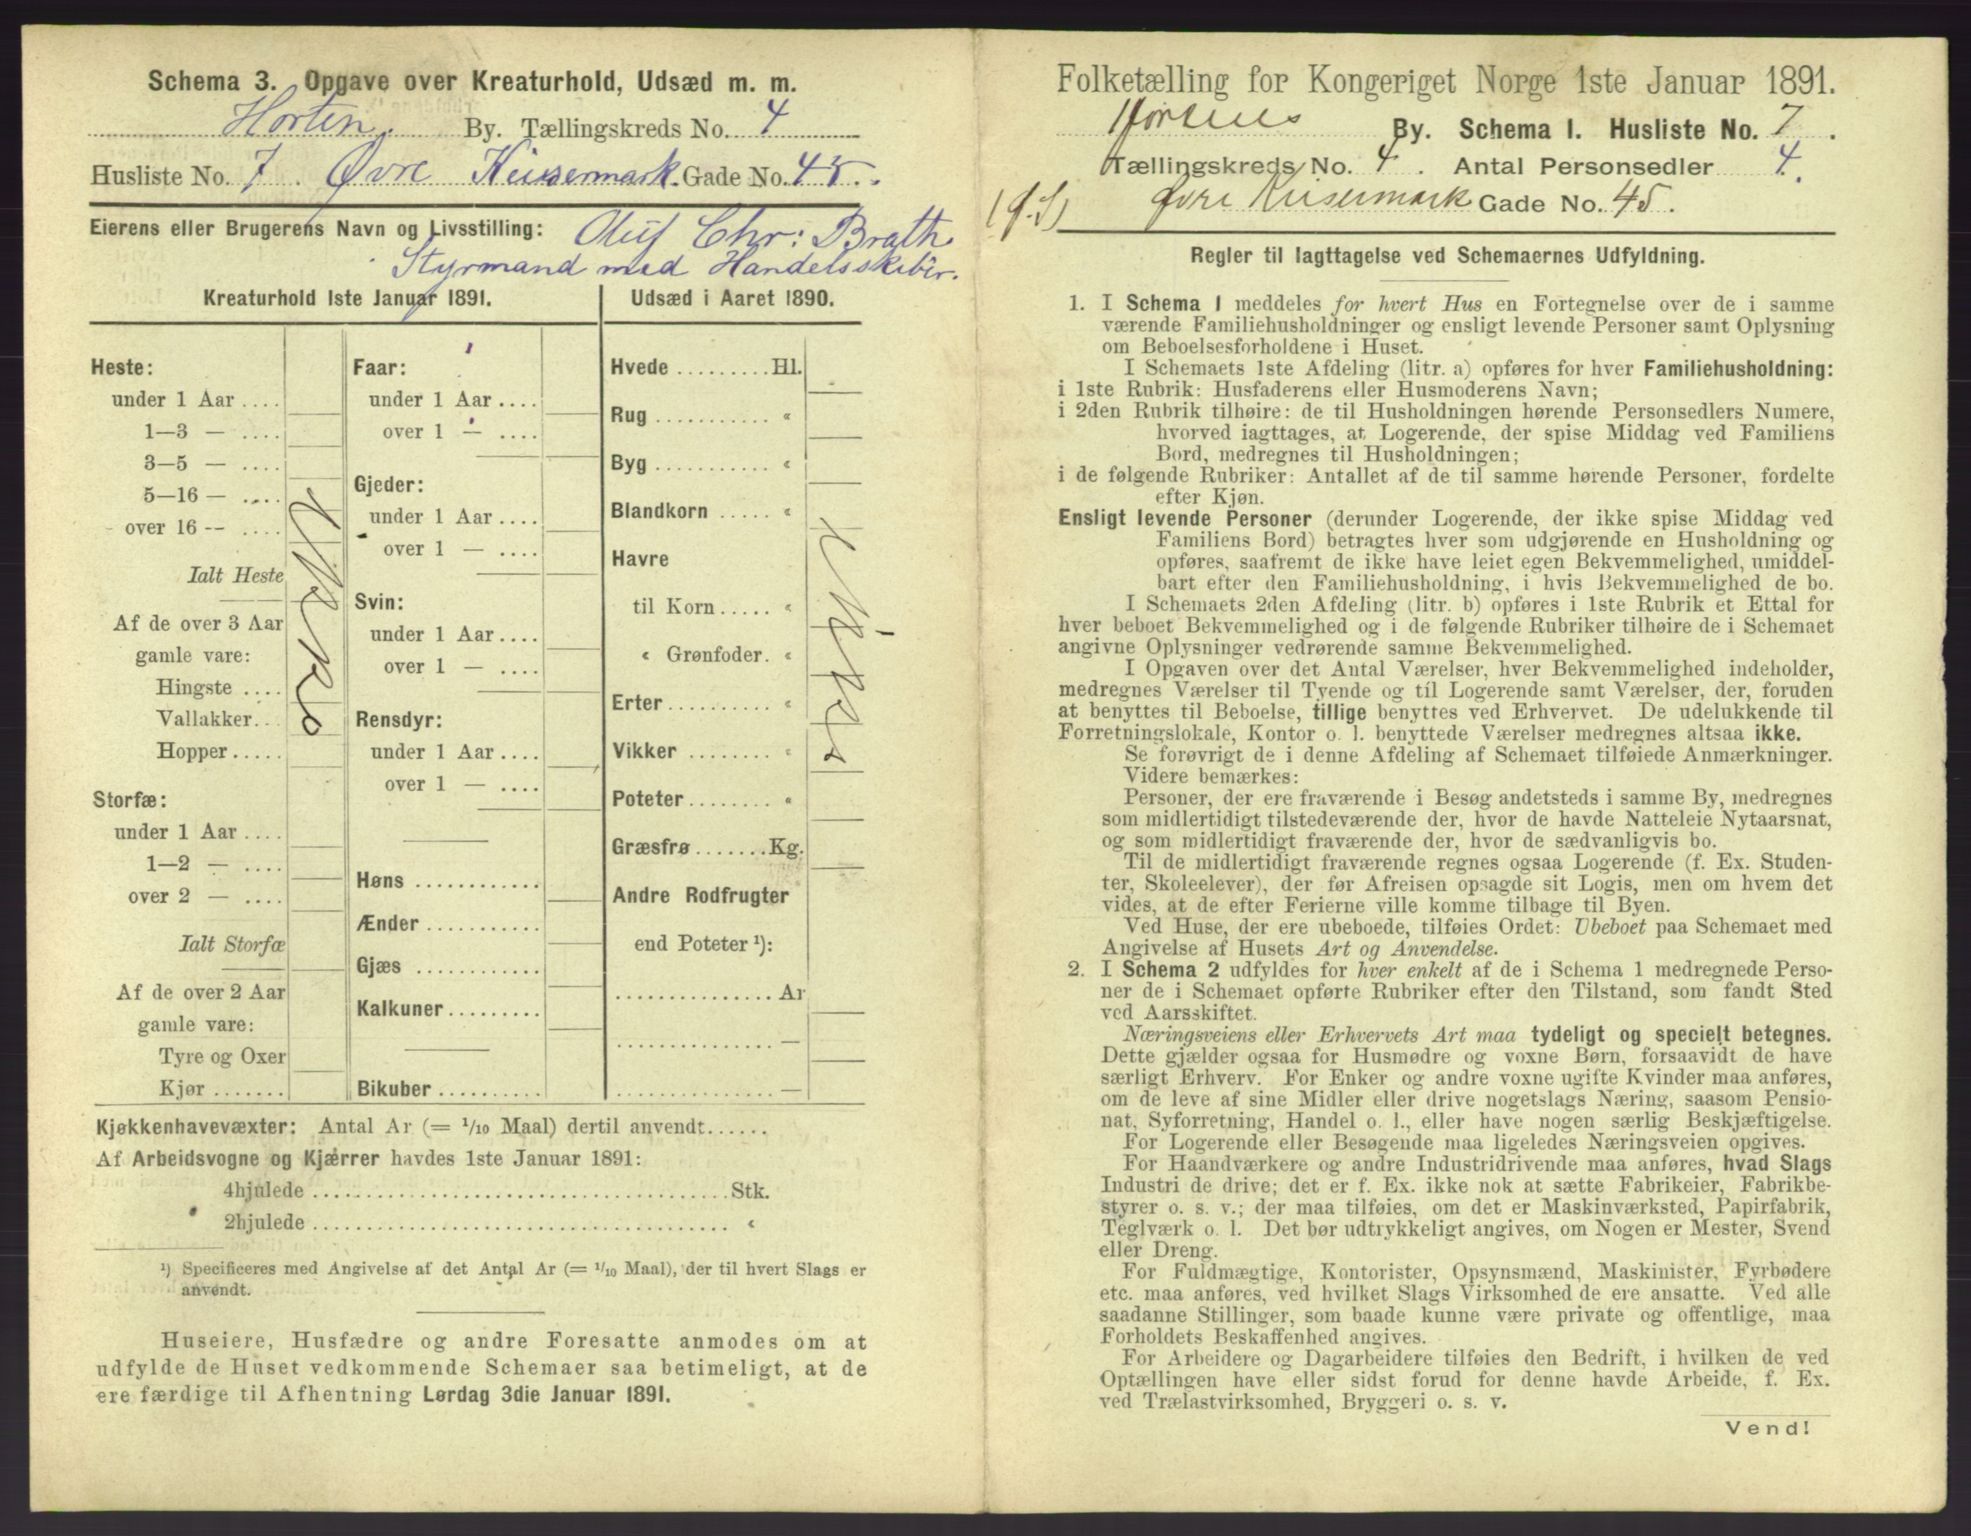 Schema 3. Opgave over Kreaturhold, Udsæd m. m.
Horten. By. Tællingskreds No. 4
Husliste No. 7. Øvre Keisermark. Gade No. 45.
Eierens eller Brugerens Navn og Livsstilling: Oluf Chr: Brath
Styrmand med Handelsskibe.
Kreaturhold 1ste Januar 1891.
Heste:
under 1 Aar ....
1—3 — ....
3—5 — ....
5—16 — ....
over 16 -- ....
Ialt Heste
Af de over 3 Aar
gamle vare:
Hingste ....
Vallakker..
Hopper .....
Storfæ:
under 1 Aar ....
1—2 — ....
over 2 — ....
Ialt Storfæ
Af de over 2 Aar
gamle vare:
Tyre og Oxer
Kjør .......
Faar:
under 1 Aar ....
over 1 — ....
Gjeder:
under 1 Aar ....
over 1 — ....
Svin:
under 1 Aar ....
over 1 — ....
Rensdyr:
under 1 Aar ....
over 1 — ....
Høns ............
Ænder ...........
Gjæs ............
Kalkuner.........
Bikuber ..........
Udsæd i Aaret 1890.
Hvede .........Hl.
Rug ........... «
Byg ........... «
Blandkorn ..... «
Havre
til Korn..... «
« Grønfoder. «
Erter.......... «
Vikker ........ «
Poteter........ «
Græsfrø.......Kg.
Andre Rodfrugter
end Poteter ¹):
............... Ar
............... —
............... —
Kjøkkenhavevæxter: Antal Ar (= 1/10 Maal) dertil anvendt......
Af Arbeidsvogne og Kjærrer havdes 1ste Januar 1891:
4hjulede ........................................Stk.
2hjulede ........................................ «
¹) Specificeres med Angivelse af det Antal Ar (= 1/10 Maal), der til hvert Slags er
anvendt.
Huseiere, Husfædre og andre Foresatte anmodes om at
udfylde de Huset vedkommende Schemaer saa betimeligt, at de
ere færdige til Afhentning Lørdag 3die Januar 1891.
Folketælling for Kongeriget Norge 1ste Januar 1891.
Hortens By. Schema I. Husliste No. 7.
Tællingskreds No. 4. Antal Personsedler 4.
Øvre Keisermark Gade No. 45.
Regler til Iagttagelse ved Schemaernes Udfyldning.
1. I Schema 1 meddeles for hvert Hus en Fortegnelse over de i samme
værende Familiehusholdninger og ensligt levende Personer samt Oplysning
om Beboelsesforholdene i Huset.
I Schemaets 1ste Afdeling (litr. a) opføres for hver Familiehusholdning:
i 1ste Rubrik: Husfaderens eller Husmoderens Navn;
i 2den Rubrik tilhøire: de til Husholdningen hørende Personsedlers Numere,
hvorved iagttages, at Logerende, der spise Middag ved Familiens
Bord, medregnes til Husholdningen;
i de følgende Rubriker: Antallet af de til samme hørende Personer, fordelte
efter Kjøn.
Ensligt levende Personer (derunder Logerende, der ikke spise Middag ved
Familiens Bord) betragtes hver som udgjørende en Husholdning og
opføres, saafremt de ikke have leiet egen Bekvemmelighed, umiddel-
bart efter den Familiehusholdning, i hvis Bekvemmelighed de bo.
I Schemaets 2den Afdeling (litr. b) opføres i 1ste Rubrik et Ettal for
hver beboet Bekvemmelighed og i de følgende Rubriker tilhøire de i Schemaet
angivne Oplysninger vedrørende samme Bekvemmelighed.
I Opgaven over det Antal Værelser, hver Bekvemmelighed indeholder,
medregnes Værelser til Tyende og til Logerende samt Værelser, der, foruden
at benyttes til Beboelse, tillige benyttes ved Erhvervet. De udelukkende til
Forretningslokale, Kontor o. l. benyttede Værelser medregnes altsaa ikke.
Se forøvrigt de i denne Afdeling af Schemaet tilføiede Anmærkninger.
Videre bemærkes:
Personer, der ere fraværende i Besøg andetsteds i samme By, medregnes
som midlertidigt tilstedeværende der, hvor de havde Natteleie Nytaarsnat,
og som midlertidigt fraværende der, hvor de sædvanligvis bo.
Til de midlertidigt fraværende regnes ogsaa Logerende (f. Ex. Studen-
ter, Skoleelever), der før Afreisen opsagde sit Logis, men om hvem det
vides, at de efter Ferierne ville komme tilbage til Byen.
Ved Huse, der ere ubeboede, tilføies Ordet: Ubeboet paa Schemaet med
Angivelse af Husets Art og Anvendelse.
2. I Schema 2 udfyldes for hver enkelt af de i Schema 1 medregnede Perso-
ner de i Schemaet opførte Rubriker efter den Tilstand, som fandt Sted
ved Aarsskiftet.
Næringsveiens eller Erhvervets Art maa tydeligt og specielt betegnes.
Dette gjælder ogsaa for Husmødre og voxne Børn, forsaavidt de have
særligt Erhverv. For Enker og andre voxne ugifte Kvinder maa anføres,
om de leve af sine Midler eller drive nogetslags Næring, saasom Pensio-
nat, Syforretning, Handel o. l., eller have nogen særlig Beskjæftigelse.
For Logerende eller Besøgende maa ligeledes Næringsveien opgives.
For Haandværkere og andre Industridrivende maa anføres, hvad Slags
Industri de drive; det er f. Ex. ikke nok at sætte Fabrikeier, Fabrikbe-
styrer o. s. v.; der maa tilføies, om det er Maskinværksted, Papirfabrik,
Teglværk o. l. Det bør udtrykkeligt angives, om Nogen er Mester, Svend
eller Dreng.
For Fuldmægtige, Kontorister, Opsynsmænd, Maskinister, Fyrbødere
etc. maa anføres, ved hvilket Slags Virksomhed de ere ansatte. Ved alle
saadanne Stillinger, som baade kunne være private og offentlige, maa
Forholdets Beskaffenhed angives.
For Arbeidere og Dagarbeidere tilføies den Bedrift, i hvilken de ved
Optællingen have eller sidst forud for denne havde Arbeide, f. Ex.
ved Trælastvirksomhed, Bryggeri o. s. v.
Vend!